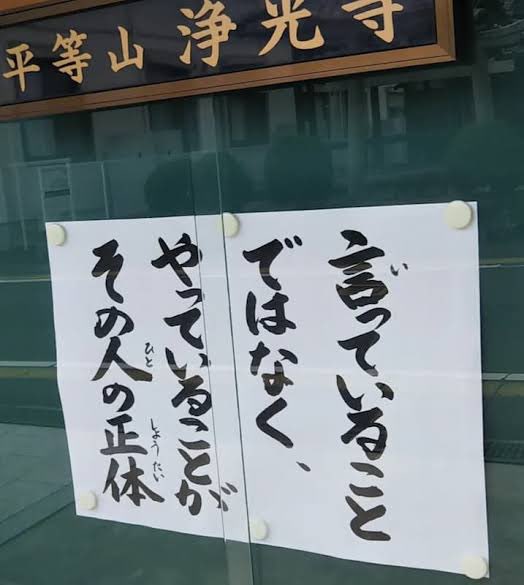 平等山 浄光寺
言っていること
ではなく、
やっていることが
その人の正体
い
ひと
しょうたい